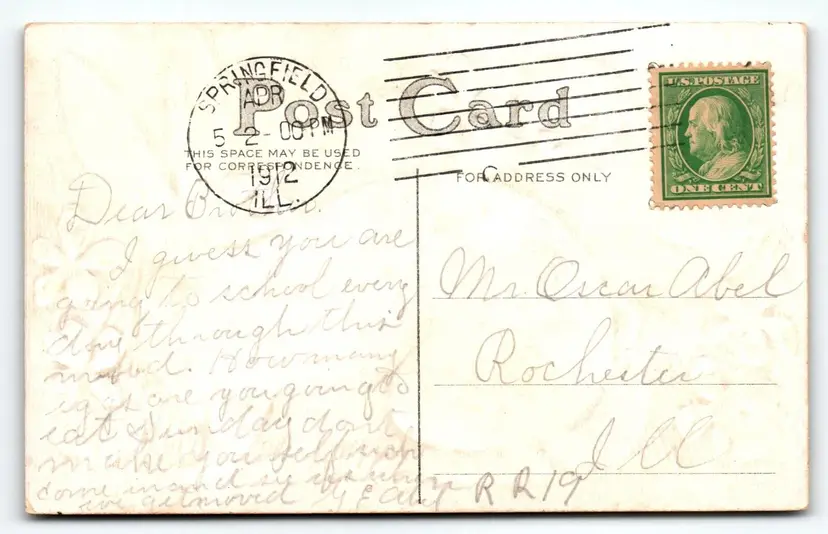 SPRINGFIELD
APR
5 2-00PM
1912
ILL.
Post Card
U.S. POSTAGE
ONE CENT
THIS SPACE MAY BE USED
FOR CORRESPONDENCE.
FOR ADDRESS ONLY
Dear Brother.
I guess you are
going to school every
day through this
mud. How many
eggs are you going to
eat Sunday dont
make yourself sick
come in and see us when
we get moved G E Abel
Mr. Oscar Abel
Rochester
Ill
R R 19